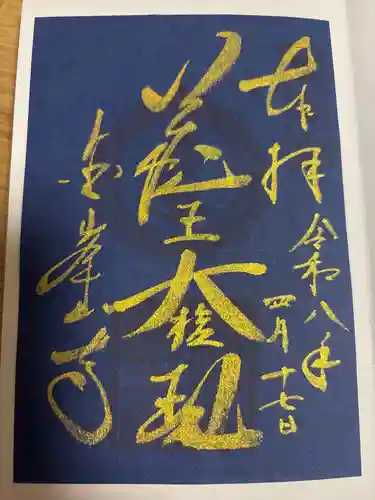 奉拝
令和八年
四月十七日
蔵王大権現
金峯山寺